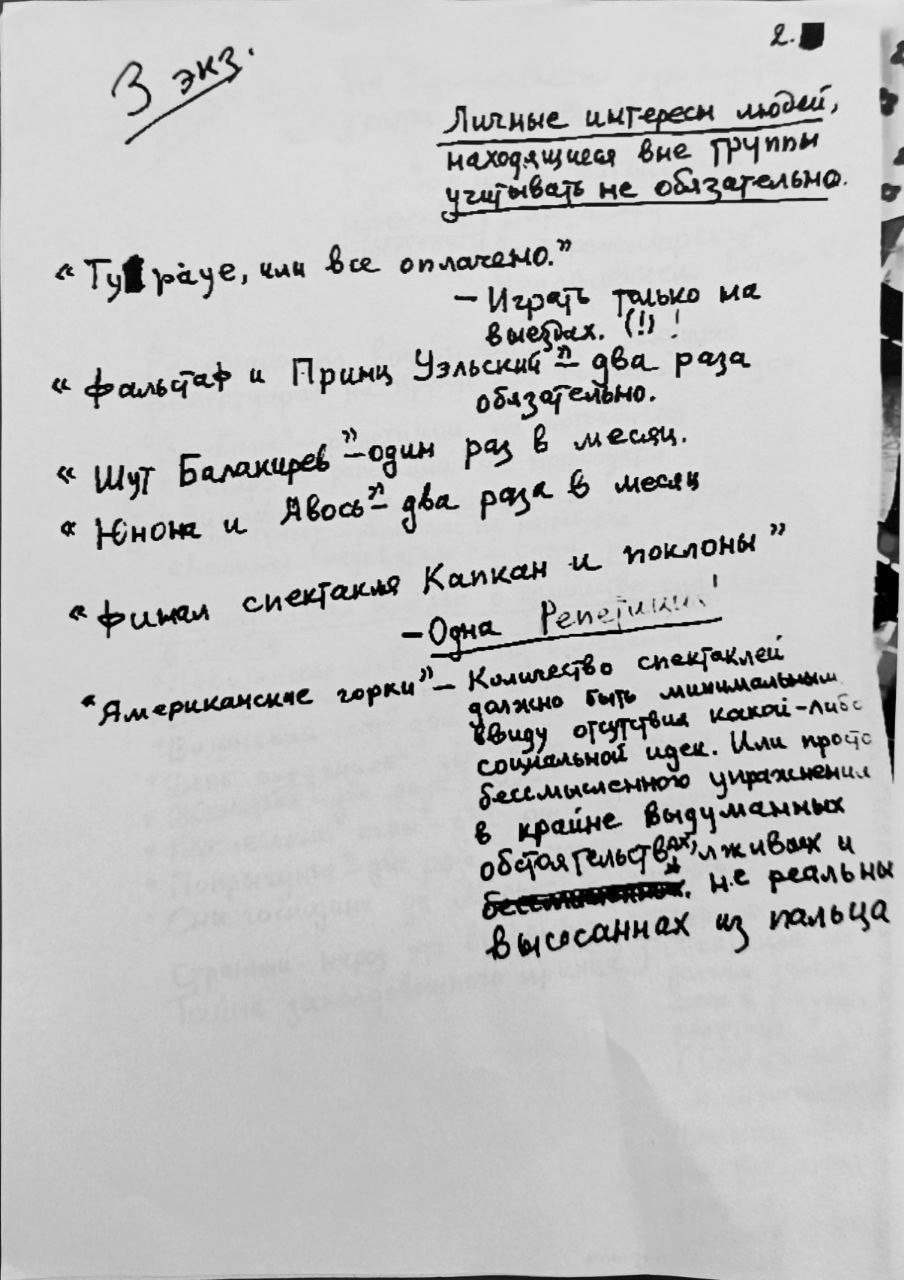 2.
3 экз.
Личные интересы людей,
находящиеся вне группы
учитывать не обязательно.
“Ту рауе, или все оплачено.”
– Играть только на
выездах. (!) !
“Фальстаф и Принц Уэльский” – два раза
обязательно.
“Шут Балакирев” – один раз в месяц.
“Юнона и Авось” – два раза в месяц
“Финал спектакля Капкан и поклоны”
– Одна Репетиция!
“Американские горки” – Количество спектаклей
должно быть минимальным
ввиду отсутствия какой-либо
социальной идеи. Или просто
бессмысленного упражнения
в крайне выдуманных
обстоятельствах, лживых и
не реальны
высосаннах из пальца